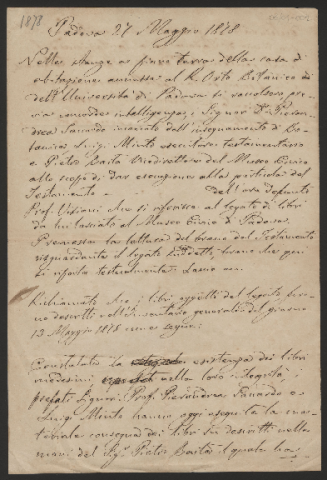 1878
Padova 27 Maggio 1878
Nelle stanze a pian terra della casa d'
abitazione annessa al R. Orto Botanico di
dell'Università di Padova si raccolsero pre-
via concorde intelligenza i Signori D.r Pieran-
drea Saccardo incaricato dell'insegnamento di Bo-
tanica Luigi Minto esecutore testamentario
e Pietro Baita Vicedirettore del Museo Civico
allo scopo di dar esecuzione alla particola del
Testamento dell'ora defunto
Prof. Visiani che si riferisce al legato di libri
da lui lasciati al Museo Civico di Padova.
Premessa la lettura del brano del Testamento
risguardante il legato suddetto, brano che qui
si riporta testualmente
Richiamato che i libri oggetti del legato furo-
no descritti nell'Inventario generale del giorno
13 Maggio 1878 come segue:
Constatata la esistenza dei libri
medesimi nella loro integrità,
prefati Signori Prof. Pierandrea Saccardo e
Luigi Minto hanno oggi eseguita la ma-
teriale consegna dei libri su descritti nelle
mani del Sig. Pietro Baita il quale